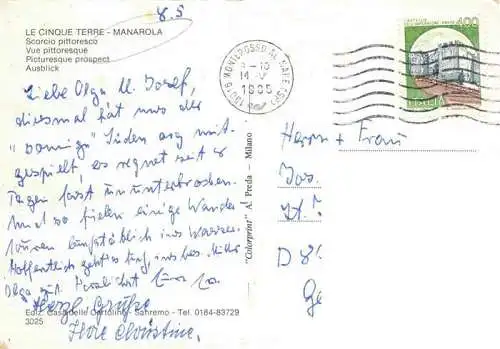 8.5
LE CINQUE TERRE - MANAROLA
Scorcio pittoresco
Vue pittoresque
Picturesque prospect
Ausblick
Liebe Olga u. Josef,
diesmal hat uns der
" " Süden arg mit-
gespielt, es regnet seit
Tagen fast ununterbrochen.
Und so fielen einige Wander
touren buchstäblich ins Wasser.
Hoffentlich geht es Euch, insbes.
Olga gut.
Herzl. Grüße
Ihre Christine
Ediz. Casa delle Cartoline - Sanremo - Tel. 0184-83729
3025
"Colorprint" A. Preda - Milano
MONTEROSSO AL MARE (SP)
400
ITALIA
Herrn + Frau
Jos
St.
D 8